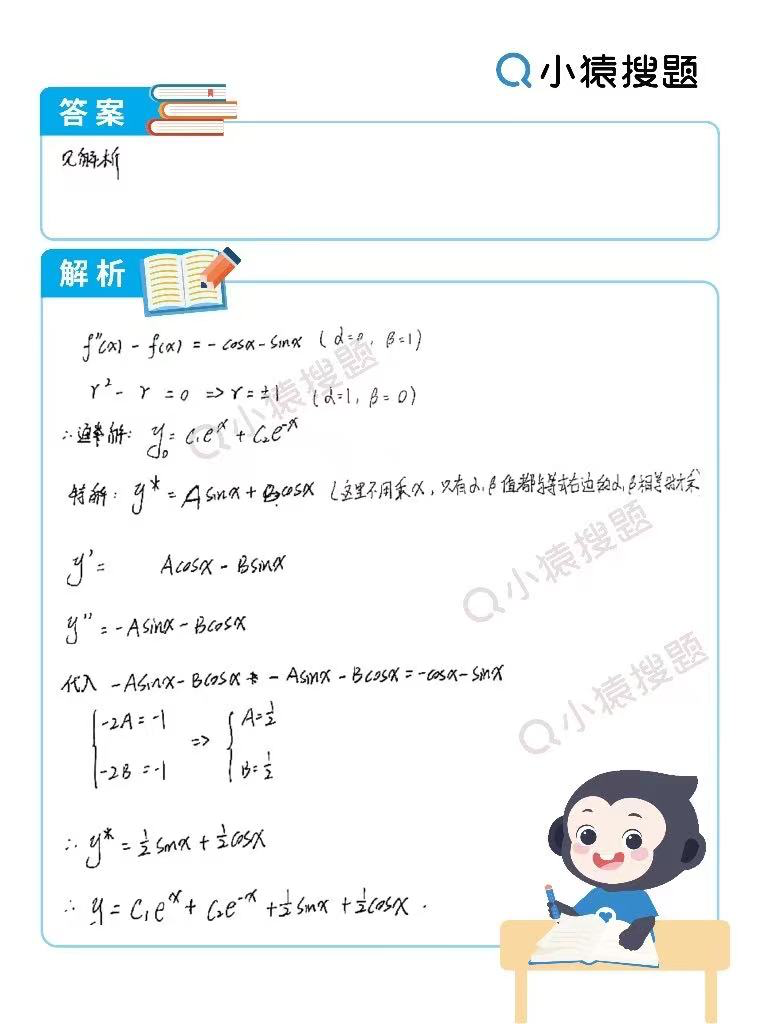 小猿搜题
答案
见解析
解析
f''(x) - f(x) = - cosx - sinx (α=0, β=1)
r² - r = 0 => r = ±1 (α=1, β=0)
∴通解: y₀ = C₁eˣ + C₂e⁻ˣ
特解: y* = Asinx + Bcosx (这里不用乘x, 只有α,β值都与等式右边的α,β相等时才乘)
y' = Acosx - Bsinx
y'' = -Asinx - Bcosx
代入 -Asinx - Bcosx - Asinx - Bcosx = -cosx - sinx
{ -2A = -1 => { A = 1/2
-2B = -1 B = 1/2
∴ y* = 1/2 sinx + 1/2 cosx
∴ y = C₁eˣ + C₂e⁻ˣ + 1/2 sinx + 1/2 cosx .
小猿搜题
小猿搜题
小猿搜题